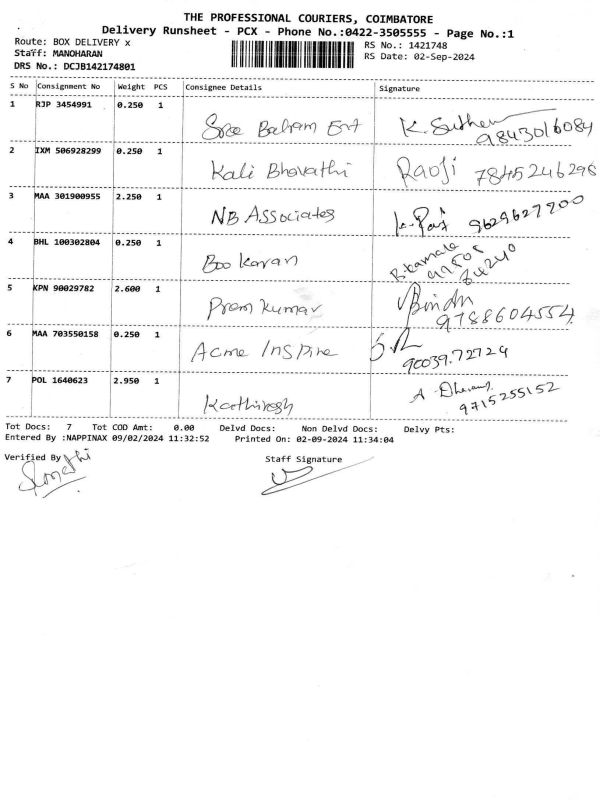 THE PROFESSIONAL COURIERS, COIMBATORE
Delivery Runsheet - PCX - Phone No.:0422-3505555 - Page No.:1
Route: BOX DELIVERY x
RS No.: 1421748
Staff: MANOHARAN
RS Date: 02-Sep-2024
DRS No.: DCJB142174801
S No Consignment No Weight PCS Consignee Details Signature
1 RJP 3454991 0.250 1 Sree Balram Ent K. Suthen 9843016084
2 IXM 506928299 0.250 1 Kali Bhavathi Raoji 7845246296
3 MAA 301900955 2.250 1 NB Associates 9629627700
4 BHL 100302804 0.250 1 Boo Karan B. Kamala
5 KPN 90029782 2.600 1 Prem Kumar Bindu 9788604554
6 MAA 703550158 0.250 1 Acme Inspire 90039.72724
7 POL 1640623 2.950 1 Karthivegh A 9715255152
Tot Docs: 7 Tot COD Amt: 0.00 Delvd Docs: Non Delvd Docs: Delvy Pts:
Entered By :NAPPINAX 09/02/2024 11:32:52 Printed On: 02-09-2024 11:34:04
Verified By Staff Signature